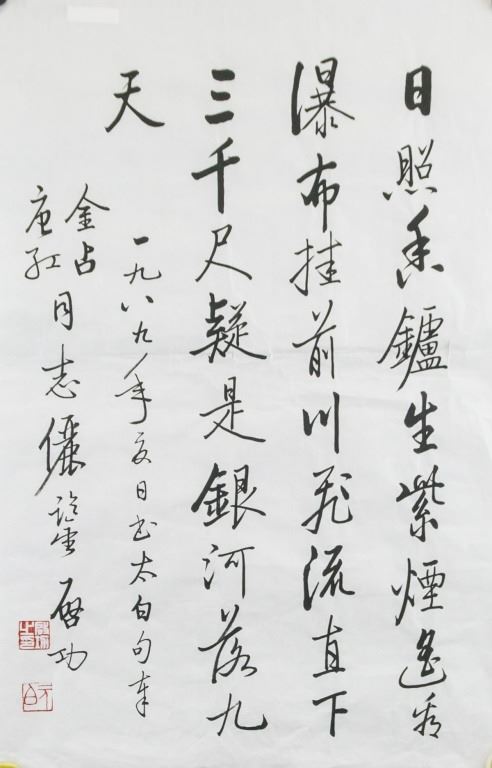 日照香鑪生紫煙遙看
瀑布挂前川飛流直下
三千尺疑是銀河落九
天
一九八九年夏日書太白句奉
金占
唐紅
同志儷鑒 啓功
元白